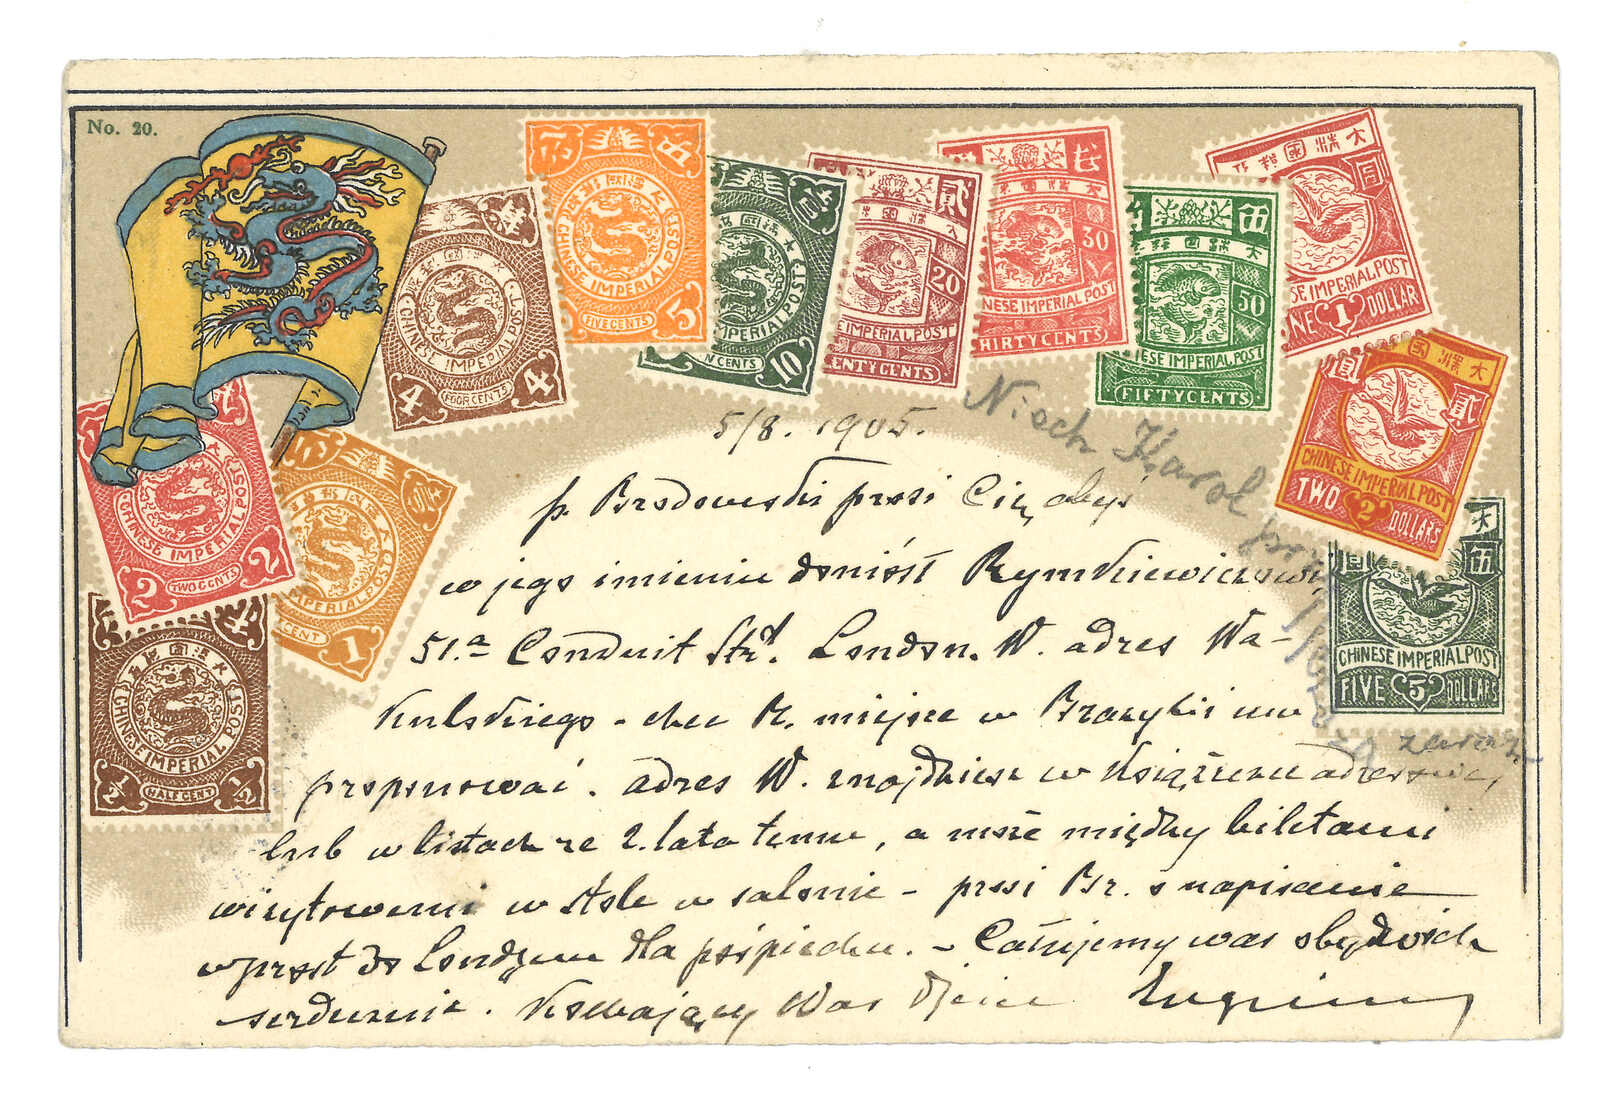 No. 20.
CHINESE IMPERIAL POST
4 FOUR CENTS 4
CHINESE IMPERIAL POST
5 FIVE CENTS 5
IMPERIAL POST
N CENTS 10
貳
20
E IMPERIAL POST
ENTY CENTS
30
NESE IMPERIAL POST
HIRTY CENTS
伍
50
NESE IMPERIAL POST
FIFTY CENTS
大清國郵政
圓
SE IMPERIAL POST
NE 1 DOLLAR
大清國
貳 圓
CHINESE IMPERIAL POST
TWO 2 DOLLARS
大
伍 圓
CHINESE IMPERIAL POST
FIVE 5 DOLLARS
CHINESE IMPERIAL POST
2 TWO CENTS 2
IMPERIAL POST
CENT 1
CHINESE IMPERIAL POST
1/2 HALF CENT 1/2
5/8. 1905.
Niech Karol
p. Brodowski prosi Cię, abyś
w jego imieniu doniósł Rymkiewiczowi
51.a Conduit Str. London. W. adres Wa-
kulskiego - chce R. miejsce w Brazylii mu
zaraz
proponować. adres W. znajdziesz w książeczce adresowej,
lub w listach ze 2. lata temu, a może między biletami
wizytowemi w stole w salonie - prosi Br. o napisanie
wprost do Londynu dla pośpiechu. - Całujemy was obydwóch
serdecznie. Kochający Was Ojciec